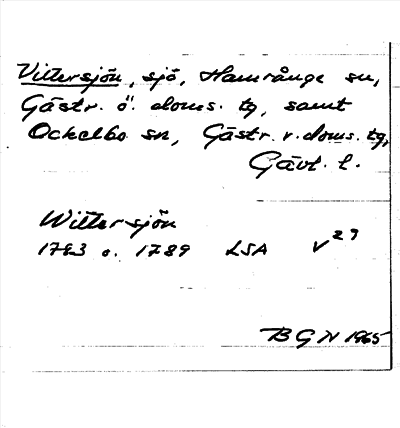 Vittersjön, sjö, Hamrånge sn,
Gästr. ö. doms. tg, samt
Ockelbo sn, Gästr. v. doms. tg,
Gävl. l.
Wittersjön
1783 o. 1789 LSA V 29
B G N 1965